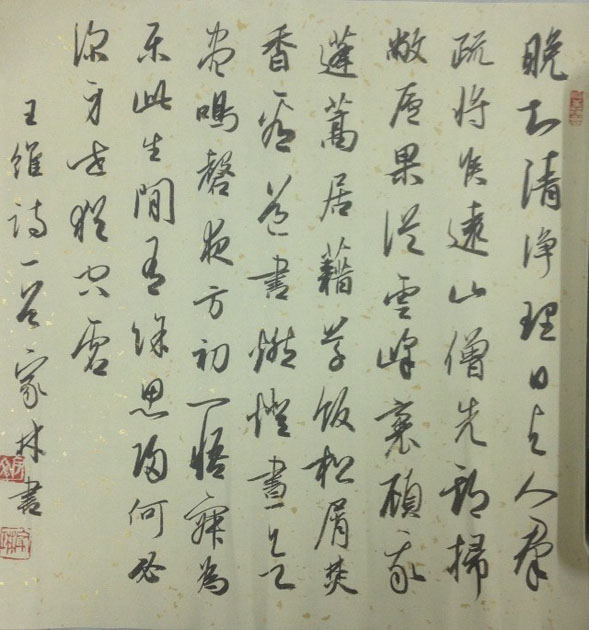 晚知清浄理日与人羣
疏將候遠山僧先期掃
敝廬果從雲峰裏顧我
蓬蒿居藉草飯松屑焚
香看道書燃燈晝欲
盡鳴磬夜方初一悟寂為
樂此生閒有餘思歸何必
深身世猶空虛
王維詩一首家林書